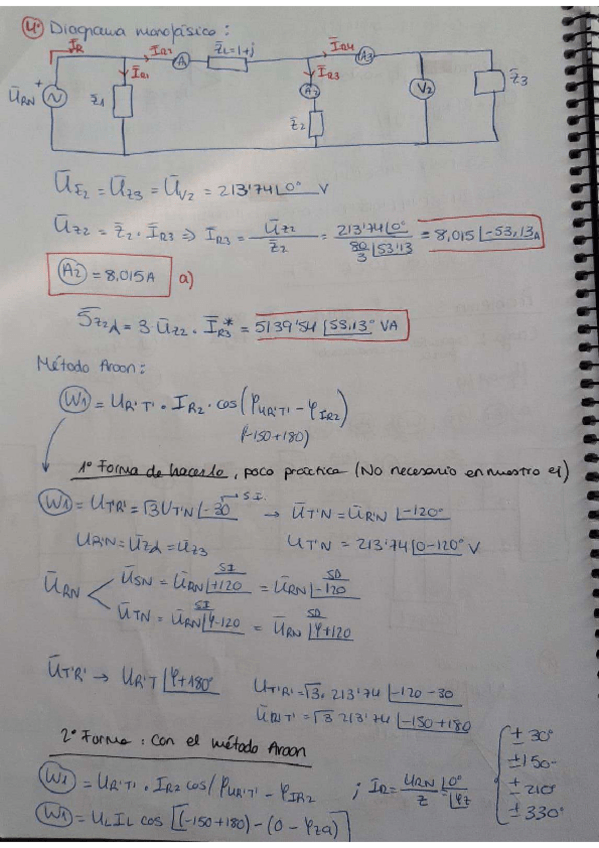 4º Diagrama monofásico:
I̅R I̅R2 Z̅L=1+j I̅R4
A A3
I̅R1 I̅R3
U̅RN + Z̅1 A2 V2 Z̅3
Z̅2
U̅Z2 = U̅Z3 = U̅V2 = 213'74|0° V
U̅Z2 = Z̅2 · I̅R3 ⇒ I̅R3 = U̅Z2/Z̅2 = 213'74|0°/(80/3 |53'13) = 8,015 |-53,13 A
A2 = 8,015 A a)
S̅Z2⅄ = 3 · U̅Z2 · I̅R3* = 5139'54 |53,13° VA
Método Aroon:
W1 = UR'T' · IR2 · cos(φUR'T' - φIR2)
(-150+180)
1º Forma de hacerlo, poco practica (No necesario en nuestro ej)
W1 = UT'R' = √3 UT'N |-30 → S.I. → U̅T'N = U̅R'N |-120°
UR'N = U̅Z⅄ = U̅Z3 UT'N = 213'74 |0-120° V
U̅RN U̅SN = U̅RN |+120 SI = U̅RN |-120 SD
U̅TN = U̅RN |φ-120 SI = U̅RN |φ+120 SD
U̅T'R' → UR'T |φ+180° UT'R' = √3. 213'74 |-120-30
U̅R'T' = √3 213'74 |-150+180
2º Forma: Con el método Aroon
W1 = UR'T' · IR2 cos(φUR'T' - φIR2 ; I̅R = URN/Z = |0°/|φZ
W1 = UL IL cos [(-150+180) - (0 - φZa)]
± 30°
±150°
± 210°
± 330°